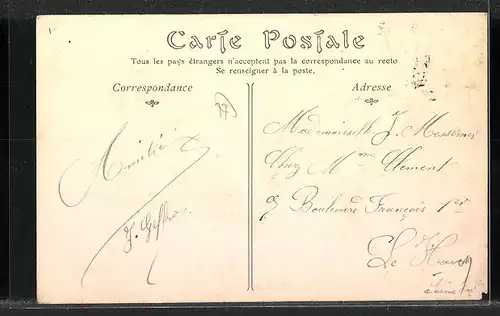 Carte Postale
Tous les pays étrangers n'acceptent pas la correspondance au recto
Se renseigner à la poste.
Correspondance
Adresse
77
Amitié
Mademoiselle J.
Chez Mme Clement
9 Boulevard François 1er
Le Havre